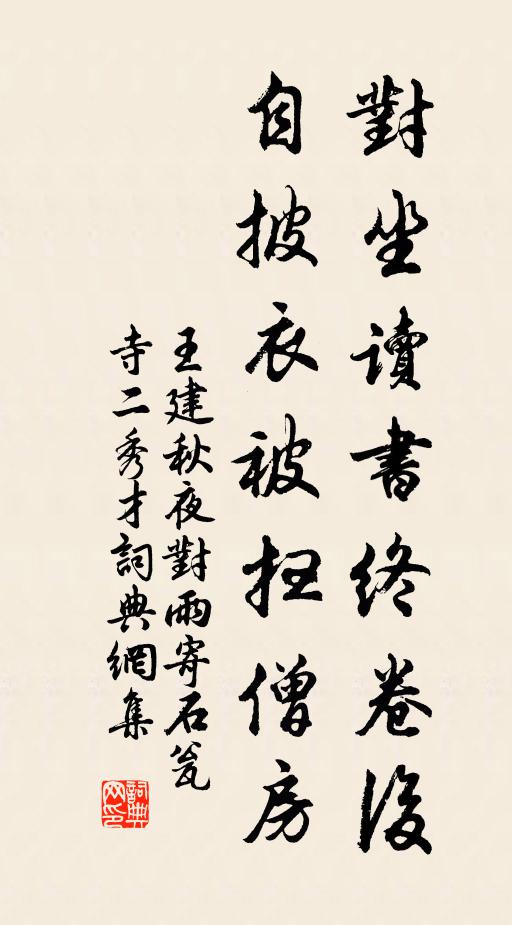 對坐讀書終卷後
自披衣被扫僧房
王建秋夜對雨寄石瓮
寺二秀才詞典網集
詞典网印